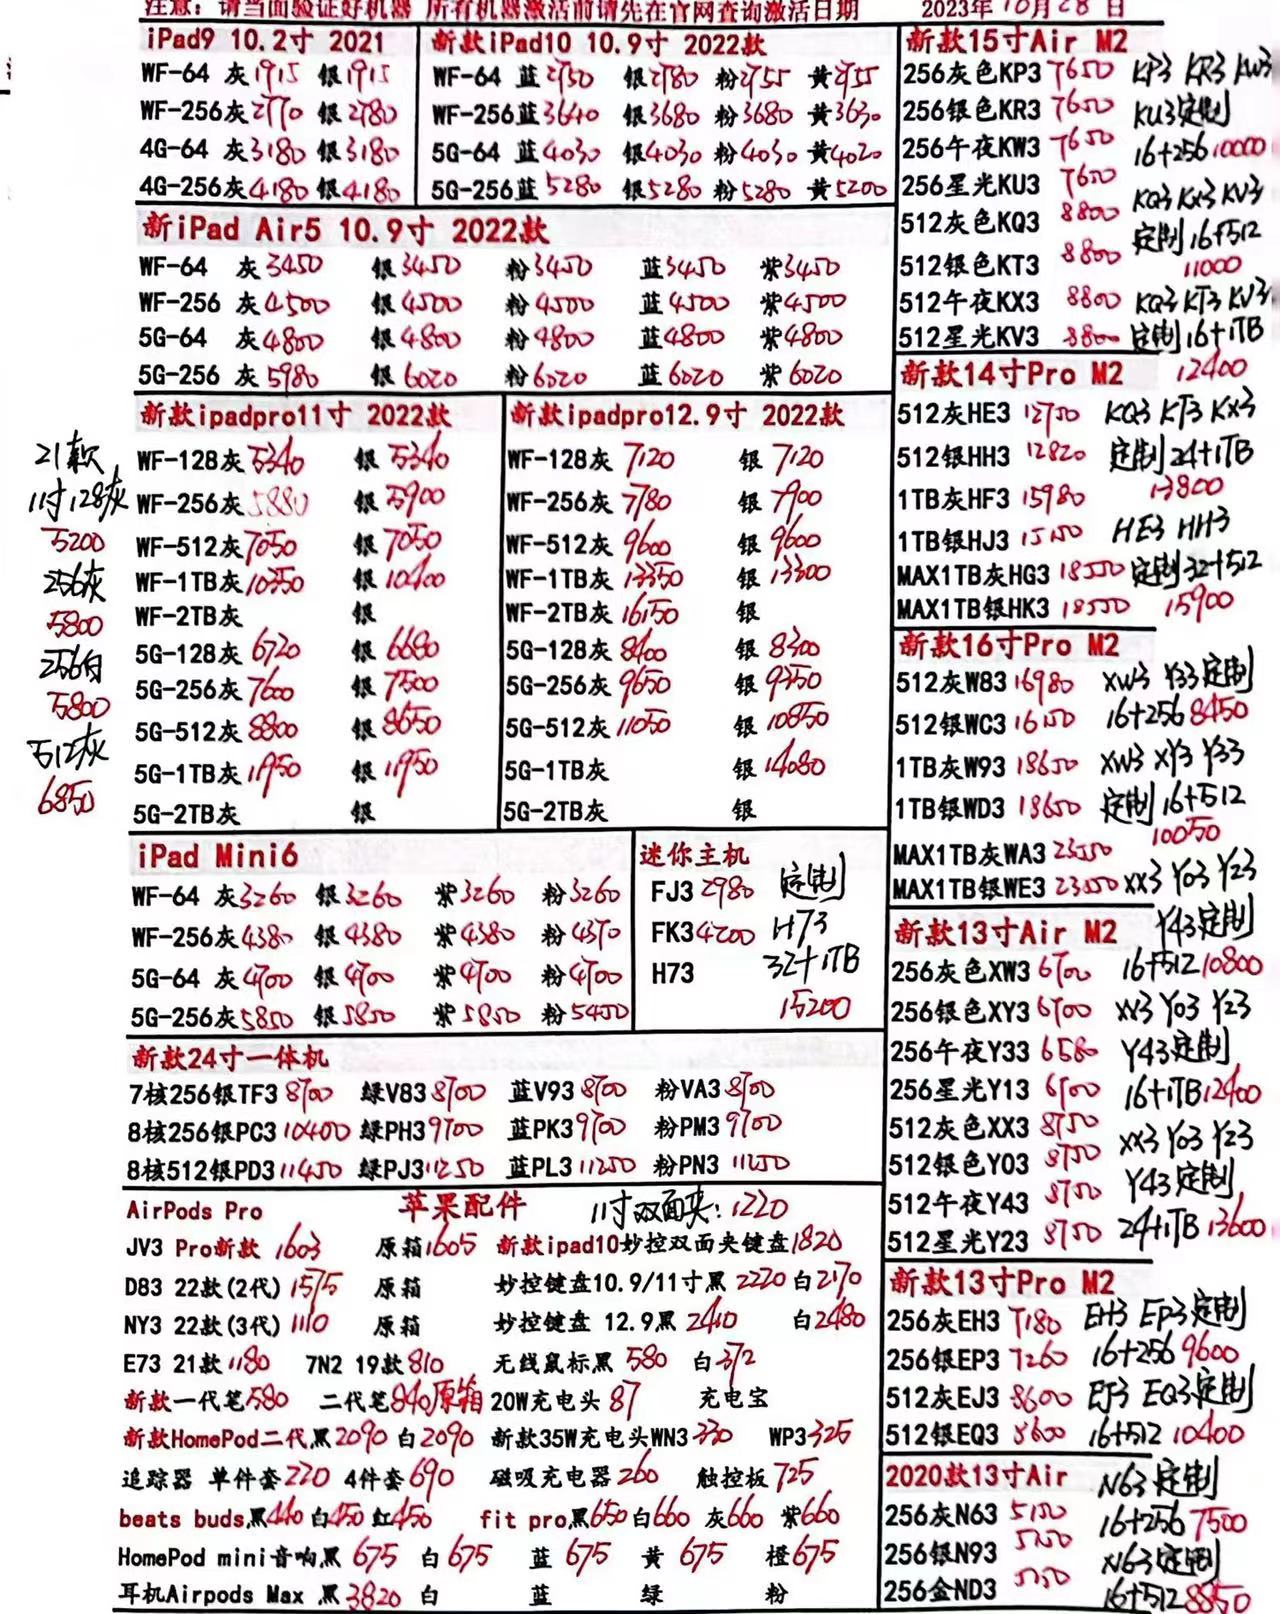 注意：请当面验证好机器 所有机器激活前请先在官网查询激活日期 2023年10月28日
iPad9 10.2寸 2021
WF-64 灰1915 银1915
WF-256灰2770 银2780
4G-64 灰3180 银3180
4G-256灰4180 银4180
新款iPad10 10.9寸 2022款
WF-64 蓝2750 银2780 粉2755 黄2755
WF-256蓝3640 银3680 粉3680 黄3630
5G-64 蓝4030 银4030 粉4030 黄4020
5G-256蓝5280 银5280 粉5280 黄5200
新iPad Air5 10.9寸 2022款
WF-64 灰3450 银3450 粉3450 蓝3450 紫3450
WF-256 灰4500 银4500 粉4500 蓝4500 紫4500
5G-64 灰4800 银4800 粉4800 蓝4800 紫4800
5G-256 灰5980 银6020 粉6020 蓝6020 紫6020
21款
11寸128灰
5200
256灰
5800
256白
5800
512灰
6850
新款ipadpro11寸 2022款
WF-128灰5340 银5340
WF-256灰5880 银5900
WF-512灰7050 银7050
WF-1TB灰10350 银10400
WF-2TB灰 银
5G-128灰6720 银6680
5G-256灰7600 银7500
5G-512灰8800 银8650
5G-1TB灰11950 银11950
5G-2TB灰 银
新款ipadpro12.9寸 2022款
WF-128灰7120 银7120
WF-256灰7780 银7900
WF-512灰9600 银9600
WF-1TB灰13350 银13300
WF-2TB灰16150 银
5G-128灰8400 银8300
5G-256灰9650 银9350
5G-512灰11050 银10850
5G-1TB灰 银14080
5G-2TB灰 银
iPad Mini6
WF-64 灰3260 银3260 紫3260 粉3260
WF-256灰4380 银4380 紫4380 粉4370
5G-64 灰4700 银4700 紫4700 粉4700
5G-256灰5850 银5850 紫5850 粉5450
迷你主机
FJ3 2980 定制
FK3 4200 H73
H73 32+1TB
15200
新款24寸一体机
7核256银TF3 8700 绿V83 8700 蓝V93 8700 粉VA3 8700
8核256银PC3 10400 绿PH3 9700 蓝PK3 9700 粉PM3 9700
8核512银PD3 11450 绿PJ3 11250 蓝PL3 11250 粉PN3 11250
AirPods Pro 苹果配件 11寸双面夹：1220
JV3 Pro新款 1603 原箱1605 新款ipad10妙控双面夹键盘1820
D83 22款(2代) 1575 原箱 妙控键盘10.9/11寸黑 2220 白2170
NY3 22款(3代) 1110 原箱 妙控键盘 12.9黑 2410 白2480
E73 21款1180 7N2 19款810 无线鼠标黑 580 白372
新款一代笔580 二代笔840原箱 20W充电头87 充电宝
新款HomePod二代黑2090 白2090 新款35W充电头WN3 330 WP3 325
追踪器 单件套220 4件套690 磁吸充电器260 触控板725
beats buds黑440 白450 红450 fit pro黑650 白660 灰660 紫660
HomePod mini音响黑 675 白 675 蓝 675 黄 675 橙675
耳机Airpods Max 黑3820 白 蓝 绿 粉
新款15寸Air M2
256灰色KP3 7650 KP3 KR3 KW3
256银色KR3 7650 KU3定制
256午夜KW3 7650 16+256 10000
256星光KU3 7650 KQ3 KX3 KV3
512灰色KQ3 8800 定制16+512
512银色KT3 8800 11000
512午夜KX3 8800 KQ3 KT3 KV3
512星光KV3 8800 定制16+1TB
12400
新款14寸Pro M2
512灰HE3 12750 KQ3 KT3 KX3
512银HH3 12820 定制24+1TB
1TB灰HF3 15980 13800
1TB银HJ3 HE3 HH3
MAX1TB灰HG3 18550 定制32+512
MAX1TB银HK3 18550 15900
新款16寸Pro M2
512灰W83 16980 XW3 Y33定制
512银WC3 16150 16+256 8450
1TB灰W93 18650 XW3 XY3 Y33
1TB银WD3 18650 定制16+512
10050
MAX1TB灰WA3 23550
MAX1TB银WE3 23550 XX3 Y03 Y23
Y43定制
新款13寸Air M2
256灰色XW3 6700 16+512 10800
256银色XY3 6700 XX3 Y03 Y23
256午夜Y33 6580 Y43定制
256星光Y13 6700 16+1TB 12400
512灰色XX3 8750 XX3 Y03 Y23
512银色Y03 8750 Y43定制
512午夜Y43 8750
512星光Y23 8750 24+1TB 13600
新款13寸Pro M2
256灰EH3 7180 EH3 EP3定制
256银EP3 7260 16+256 9600
512灰EJ3 8600 EJ3 EQ3定制
512银EQ3 8600 16+512 10400
2020款13寸Air N63定制
256灰N63 5150 16+256 7500
256银N93 5350 N63定制
256金ND3 16+512 8850